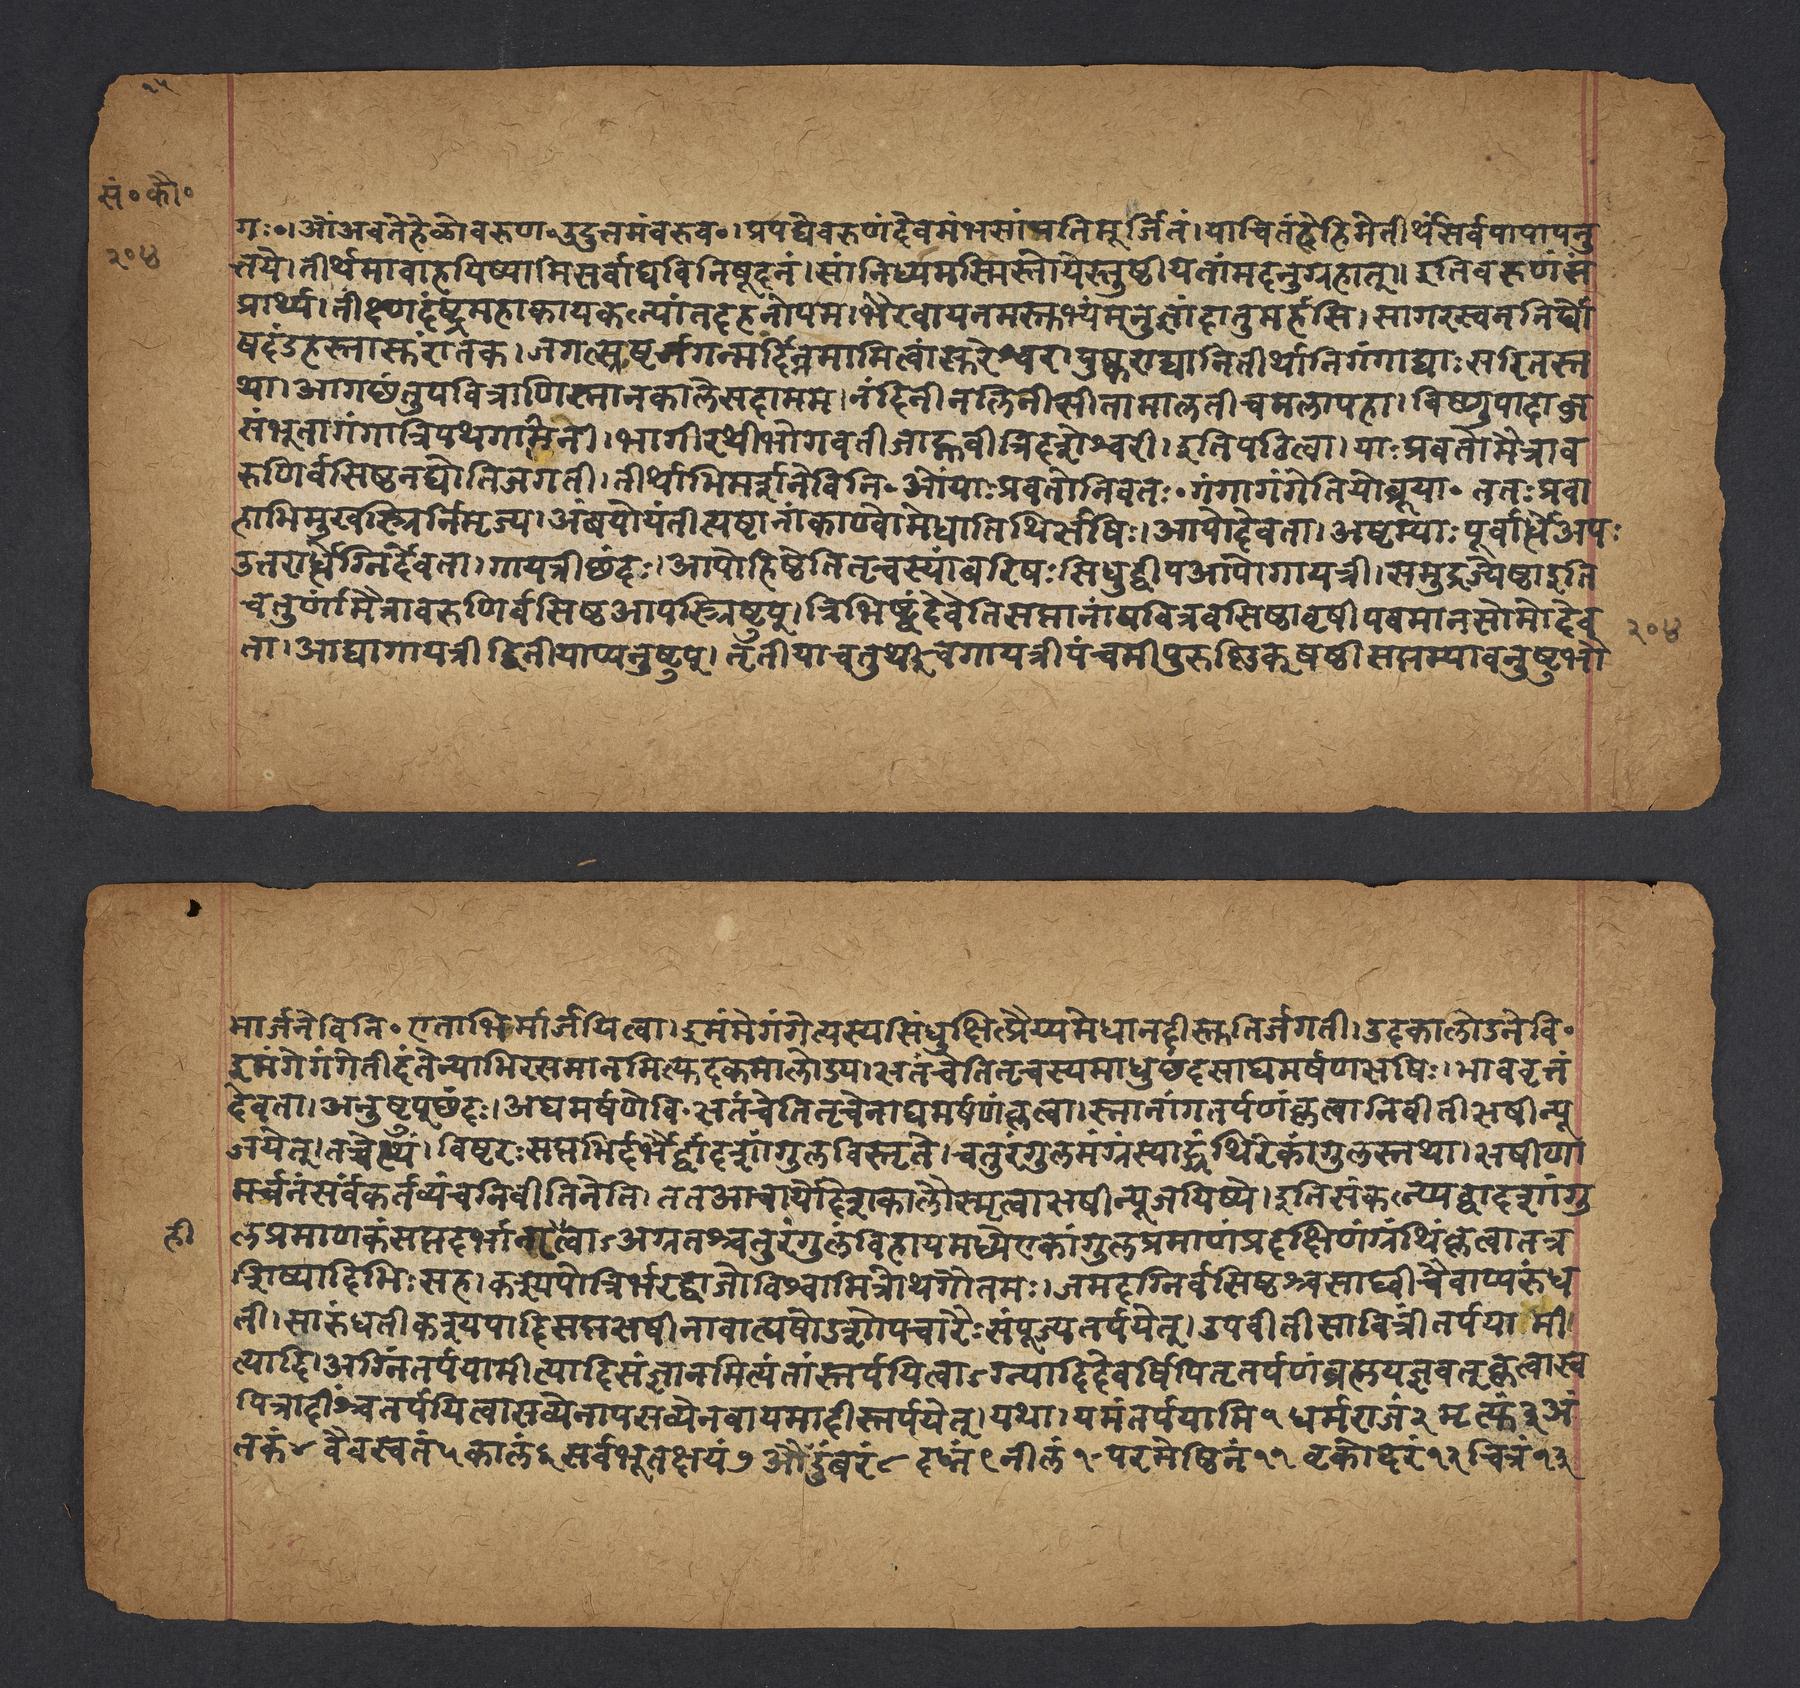 २५
सं॰कौ॰
२०४
गः॰।ओंअवतेहेळोवरुण॰उदुत्तमंवरुव॰।प्रपद्येवरुणंदेवमंभसांप्रतिमूर्जितं।याचितंहेहिमेतीर्थंसर्वपापापनु
त्तये।तीर्थमावाहयिष्यामिसर्वाघविनिषूदनं।सांनिध्यमस्मिस्तोयेस्तुष्ठीयतांमदनुग्रहात्।।इतिवरुणंसं
प्रार्थ्य।तीक्ष्णदंष्ट्रमहाकायकल्पांतदहनोपम।भैरवायनमस्तुभ्यंमनुज्ञांदातुमर्हसि।सागरस्वननिर्घो
षदंडहस्तासुरांतक।जगत्स्रष्टर्जगन्मर्दिन्नमामित्वांसुरेश्वर।पुष्कराद्यानितीर्थानिगंगाद्याःसरितस्त
था।आगछंतुपवित्राणिस्नानकालेसदामम।नंदिनीनलिनीसीतामालतीचमलापहा।विष्णुपादाब्ज
संभूतागंगात्रिपथगामिनी।भागीरथीभोगवतीजाह्नवीत्रिदशेश्वरी।इतिपठित्वा।याःप्रवतोमैत्राव
रुणिर्वसिष्ठनद्योतिजगती।तीर्थाभिमर्शनेविनि॰ओंयाःप्रवतोनिवतः॰गंगागंगेतियोब्रूया॰ततःप्रवा
हाभिमुखस्त्रिर्निमृज्य।अंबयोयंतीत्यष्टानांकाण्वोमेधातिथिर्ऋषिः।आपोदेवता।अष्टम्याःपूर्वार्धेअपः
उत्तरार्धेग्निर्देवता।गायत्रीछंदः।आपोहिष्ठेतितृचस्यांबरिषःसिंधुद्वीपआपोगायत्री।समुद्रज्येष्ठाइति
चतुर्णांमैत्रावरुणिर्वसिष्ठआपस्त्रिष्टुप्।त्रिभिष्ट्वंदेवेतिसप्तानांपवित्रवसिष्ठावृषीपवमानसोमोदेव
२०४
ता।आद्यागायत्रीद्वितीयाप्यनुष्टुप्।तृतीयाचतुर्थ्यौचगायत्रीपंचमीपुरुष्णिक्षष्ठीसप्तम्यावनुष्टुभौ
मार्जनेविनि॰एताभिर्मार्जयित्वा।इमंमेगंगेत्यस्यसिंधुक्षित्प्रैय्यमेधानदीस्तुतिर्जगती।उदकालोडनेवि॰
इमंगेगंगेतीदंतेन्याभिरसमानमित्युदकमालोड्य।ऋतंचेतितृचस्यमाधुछंदसाघमर्षणऋषिः।भाववृत्तं
देवता।अनुष्टुप्छंदः।अघमर्षणेवि॰ऋतंचेतितृचेनाघमर्षणंकृत्वा।स्नानांगतर्पणंकृत्वानिवीतीऋषीन्पू
जयेत्।तच्चेत्थं।विष्टरःसप्तभिर्दर्भैर्द्वादशांगुलविस्तृते।चतुरंगुलमंग्रस्याद्ग्रंथिरेकांगुलस्तथा।ऋषीणा
मर्चनंसर्वकर्तव्यंचनिवीतिनेति।ततआचार्योदेशकालौस्मृत्वाऋषीन्पूजयिष्ये।इतिसंकल्प्यद्वादशांगु
ही
लप्रमाणकंसप्तदर्भानात्वाऽअग्रतश्चतुरंगुलंविहायमध्येएकांगुलप्रमाणंप्रदक्षिणंग्रंथिंकृत्वातत्र
शिष्यादिभिःसह।कश्यपोत्रिर्भरद्वाजोविश्वामित्रोथगौतमः।जमदग्निर्वसिष्ठश्चसाध्वीचैवाप्यरुंध
ती।सारुंधतीकश्यपादिसप्तऋषीनावात्द्यषोडशोपचारैःसंपूज्यतर्पयेत्।उपवीतीसावित्रींतर्पयामी
त्यादि।अग्निंतर्पयामीत्यादिसंज्ञानमित्यंतांस्तर्पयित्वाऽग्न्यादिदेवर्षिपितृतर्पणंब्रह्मयज्ञवत्कृत्वास्व
पित्रादींश्चतर्पयित्वासव्येनापसव्येनवायमादीस्तर्पयेत्।यथा।यमंतर्पयामि१धर्मराजं२मृत्युं३अं
तकं४वैवस्वतं५कालं६सर्वभूतक्षयं७औदुंबरं८दध्नं९नीलं१॰परमेष्ठिनं११वृकोदरं१२चित्रं१३